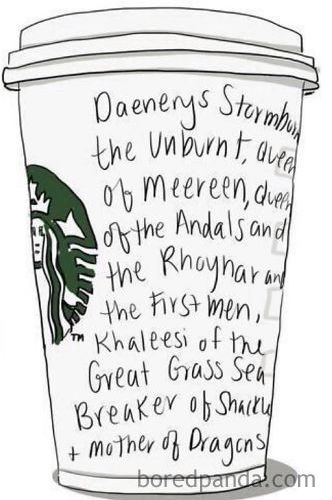 Daenerys Stormborn
the Unburnt, Queen
of Meereen, Queen
of the Andals and
the Rhoynar and
the First Men,
Khaleesi of the
Great Grass Sea
Breaker of Shackle
+ Mother of Dragons
TM
boredpanda.com